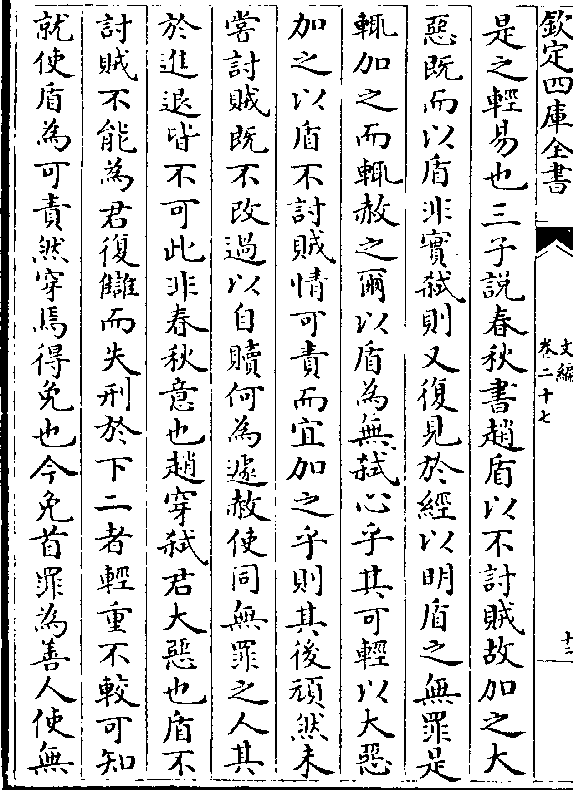 欽定四庫全書
文編
卷二十七
十三
是之輕易也三子說春秋書趙盾以不討賊故加之大
惡既而以盾非實弑則又復見於經以明盾之無罪是
輙加之而輙赦之爾以盾為無弑心乎其可輕以大惡
加之以盾不討賊情可責而宜加之乎則其後頑然未
嘗討賊既不改過以自贖何為遽赦使同無罪之人其
於進退皆不可此非春秋意也趙穿弑君大惡也盾不
討賊不能為君復讎而失刑於下二者輕重不較可知
就使盾為可責然穿焉得免也今免首罪為善人使無